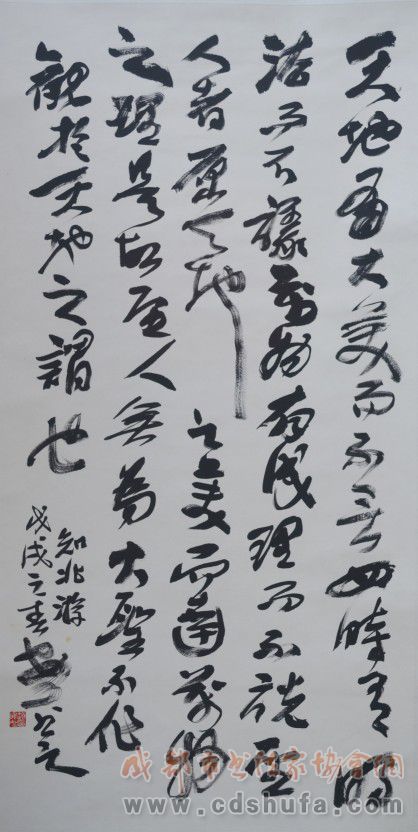 天地有大美而不言四时有明
法而不議萬物有成理而不説聖
人者原天地之美而達萬物
之理是故至人無為大聖不作
觀於天地之謂也
知北游
戊戌之春
成都市书法家协会网
www.cdshufa.com